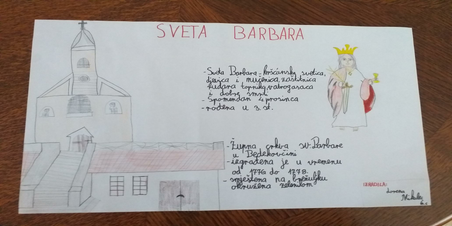 SVETA BARBARA
- Sveta Barbara - kršćanska svetica,
djevica i mučenica, zaštitnica
rudara topnika, vatrogasaca
i dobre smrti
- Spomendan 4. prosinca
- rođena u 3. st.
- Župna crkva sv. Barbare
u Bedekovčini
- izgrađena je u vremenu
od 1776 do 1778.
- smještena na brežuljku
okružena zelenilom